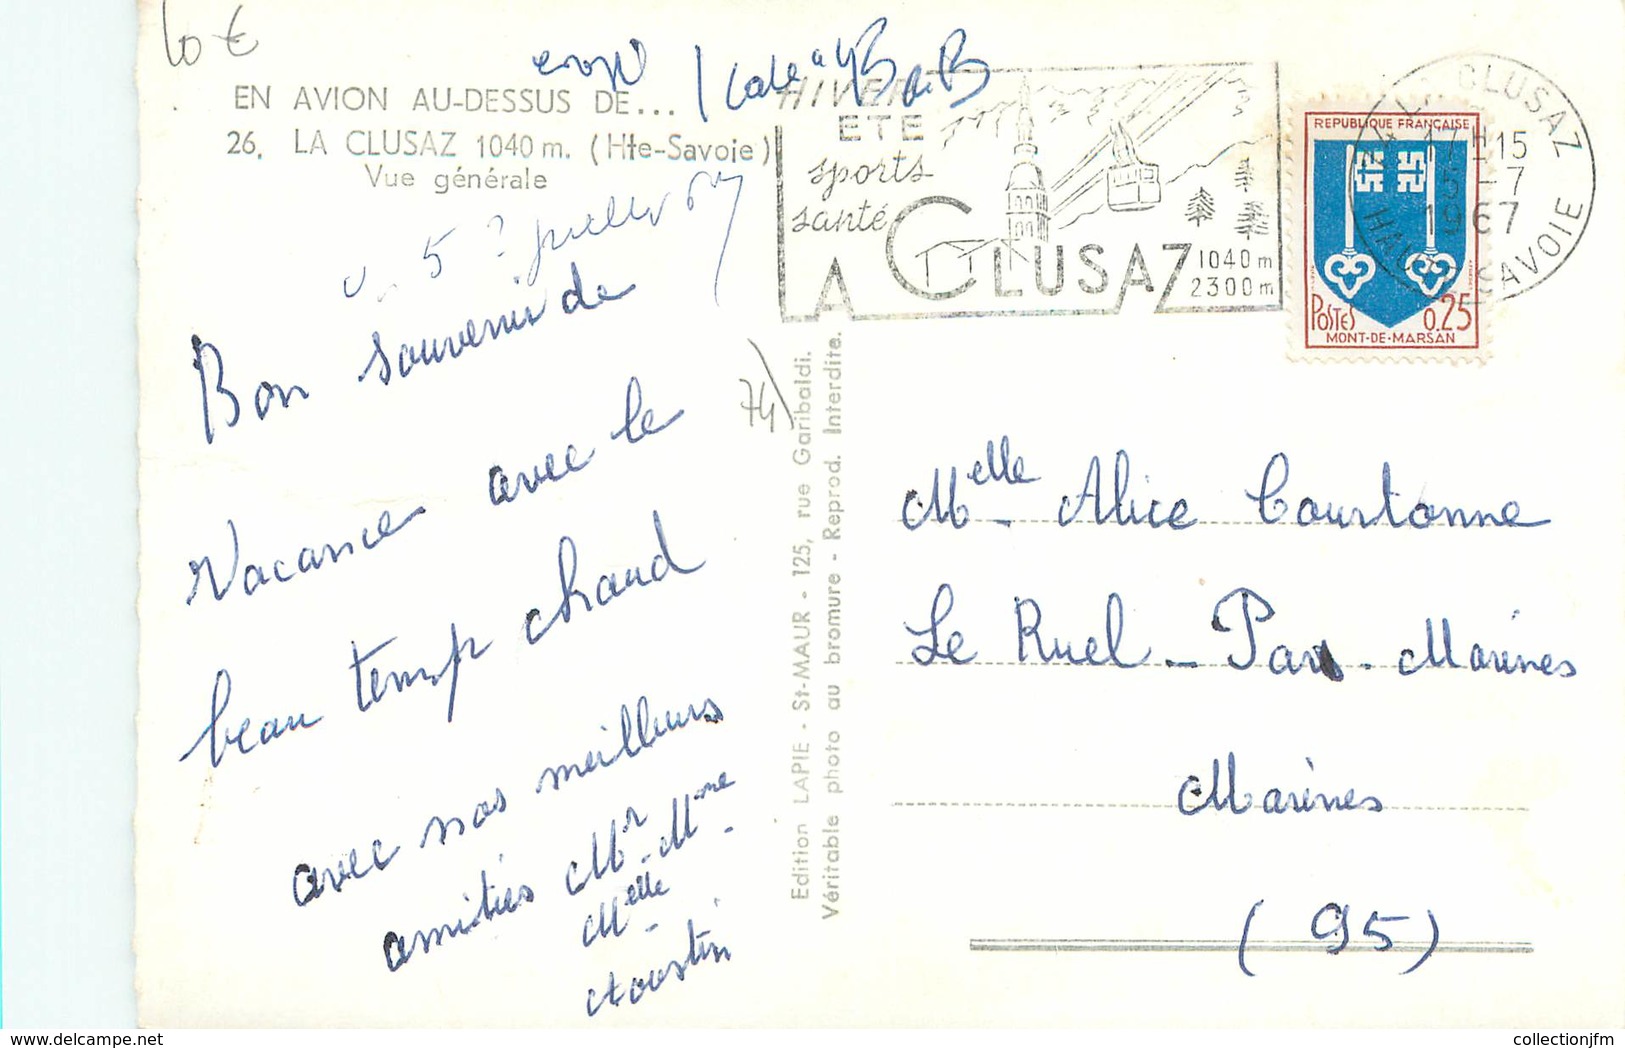 10 €
EN AVION AU-DESSUS DE...
26. LA CLUSAZ 1040 m. (Hte-Savoie)
Vue générale
5 juillet 67
Bon souvenir de
Vacance avec le
beau temp chaud
avec nos meilleurs
amitiés Mr. Mme
Melle
Aoustin
74
Edition LAPIE - St-MAUR - 125, rue Garibaldi.
Véritable photo au bromure - Reprod. Interdite.
HIVER
ETE
sports
santé
LA CLUSAZ
1040 m
2300 m
LA CLUSAZ
17H15
5-7
1967
HAUTE SAVOIE
REPUBLIQUE FRANÇAISE
POSTES 0,25
MONT-DE-MARSAN
Melle Alice Courtonne
Le Ruel - Par - Marines
Marines
(95)
collectionjfm